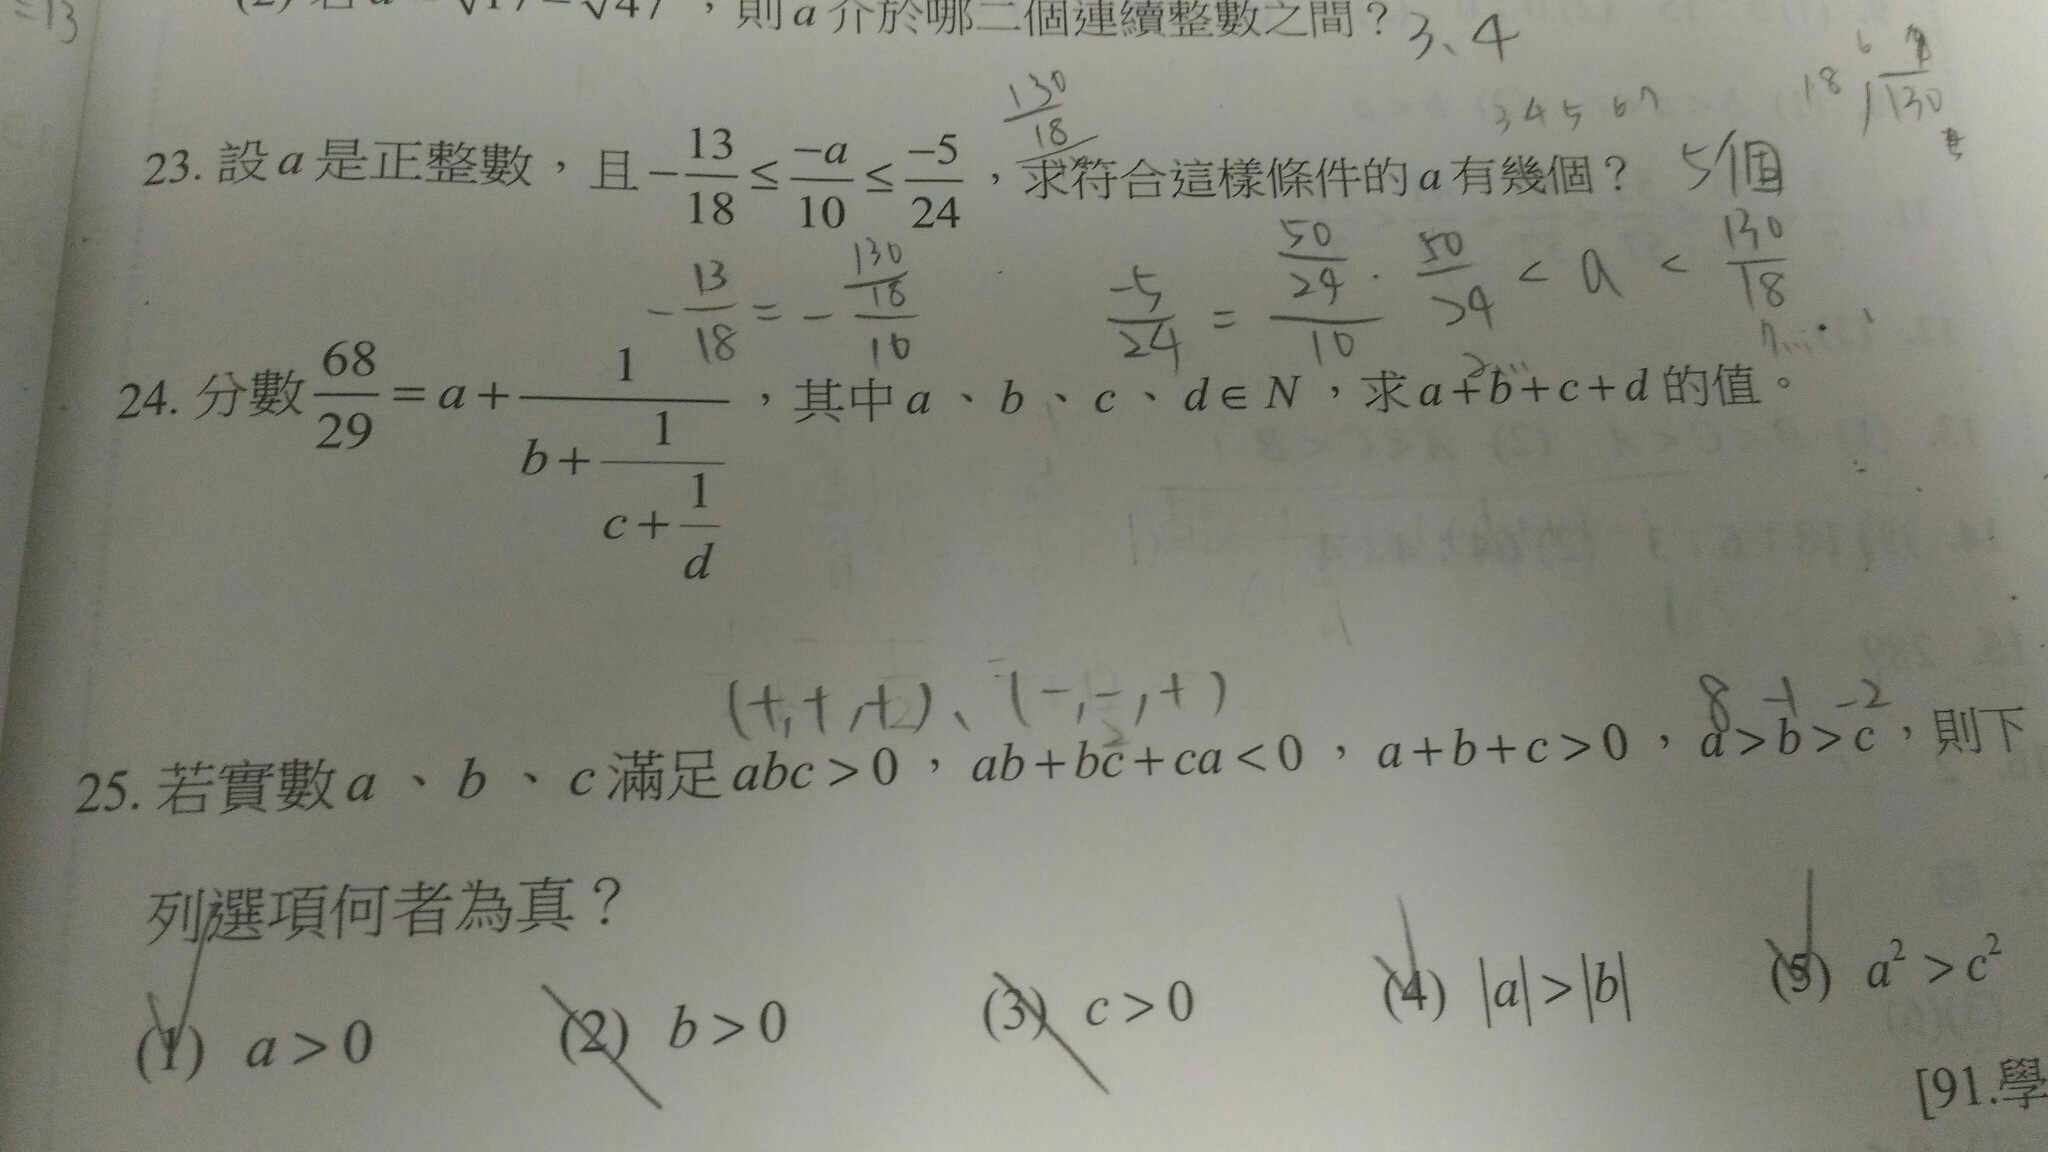 =13
(2) 若 a = √17 − √47，則 a 介於哪二個連續整數之間？ 3、4
130/18
3 4 5 6 7
18 130
23. 設 a 是正整數，且 −13/18 ≤ −a/10 ≤ −5/24，求符合這樣條件的 a 有幾個？ 5個
−13/18 = −(130/18)/10
−5/24 = (50/24)/10 . 50/24 < a < 130/18
7....
2...
24. 分數 68/29 = a + 1/(b + 1/(c + 1/d))，其中 a、b、c、d ∈ N，求 a+b+c+d 的值。
(+,+,+)、(−,−,+)
8 −1 −2
25. 若實數 a、b、c 滿足 abc > 0，ab+bc+ca < 0，a+b+c > 0，a > b > c，則下
列選項何者為真？
(1) a > 0 (2) b > 0 (3) c > 0 (4) |a| > |b| (5) a² > c²
[91.學